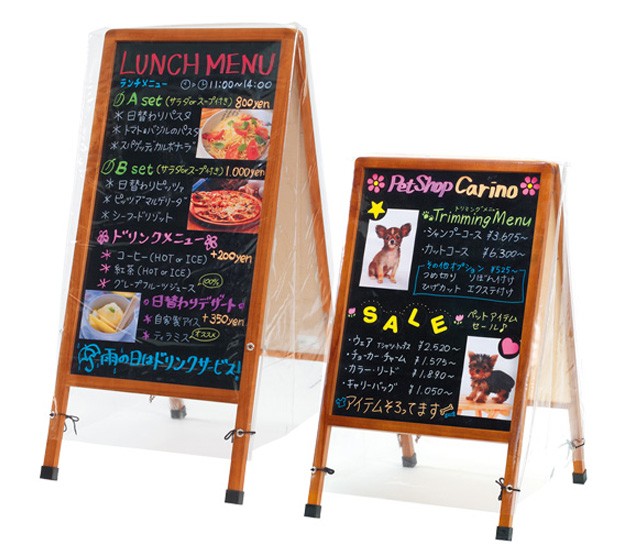 LUNCH MENU
ランチメニュー 11:00~14:00
A set (サラダorスープ付き) 800yen
* 日替わりパスタ
* トマト&バジルのパスタ
* スパゲッティカルボナーラ
B set (サラダorスープ付き) 1,000yen
* 日替わりピッツァ
* ピッツァマルゲリータ
* シーフードリゾット
ドリンクメニュー +200yen
* コーヒー (HOT or ICE)
* 紅茶 (HOT or ICE)
* グレープフルーツジュース 100%
日替わりデザート +350yen
* 自家製アイス
* ティラミス オススメ
雨の日はドリンクサービス!
PetShop Carino
トリミングメニュー
Trimming Menu
・シャンプーコース ¥3,675~
・カットコース ¥6,300~
その他オプション ¥525~
つめ切り リボン付け
ひげカット エクステ付け
SALE ペットアイテムセール♪
・ウェア Tシャツ・トップス ¥2,520~
・チョーカー・チャーム ¥1,575~
・カラー・リード ¥1,890~
・キャリーバッグ ¥1,050~
アイテムそろってます